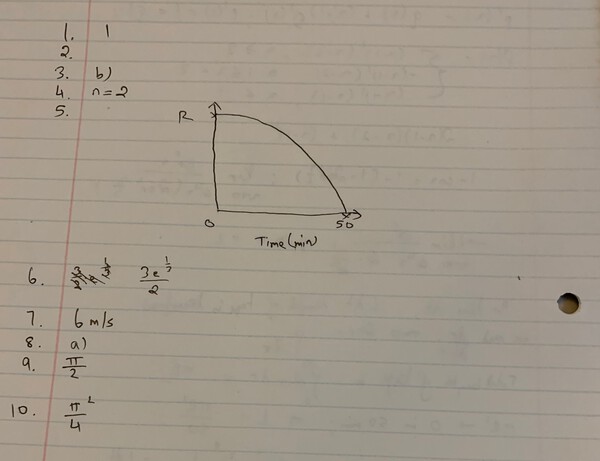 1. 1
2.
3. b)
4. n=2
5.
R
0 50
Time (min)
6. 3e^1/2 / 2
7. 6 m/s
8. a)
9. π/2
10. π^2/4